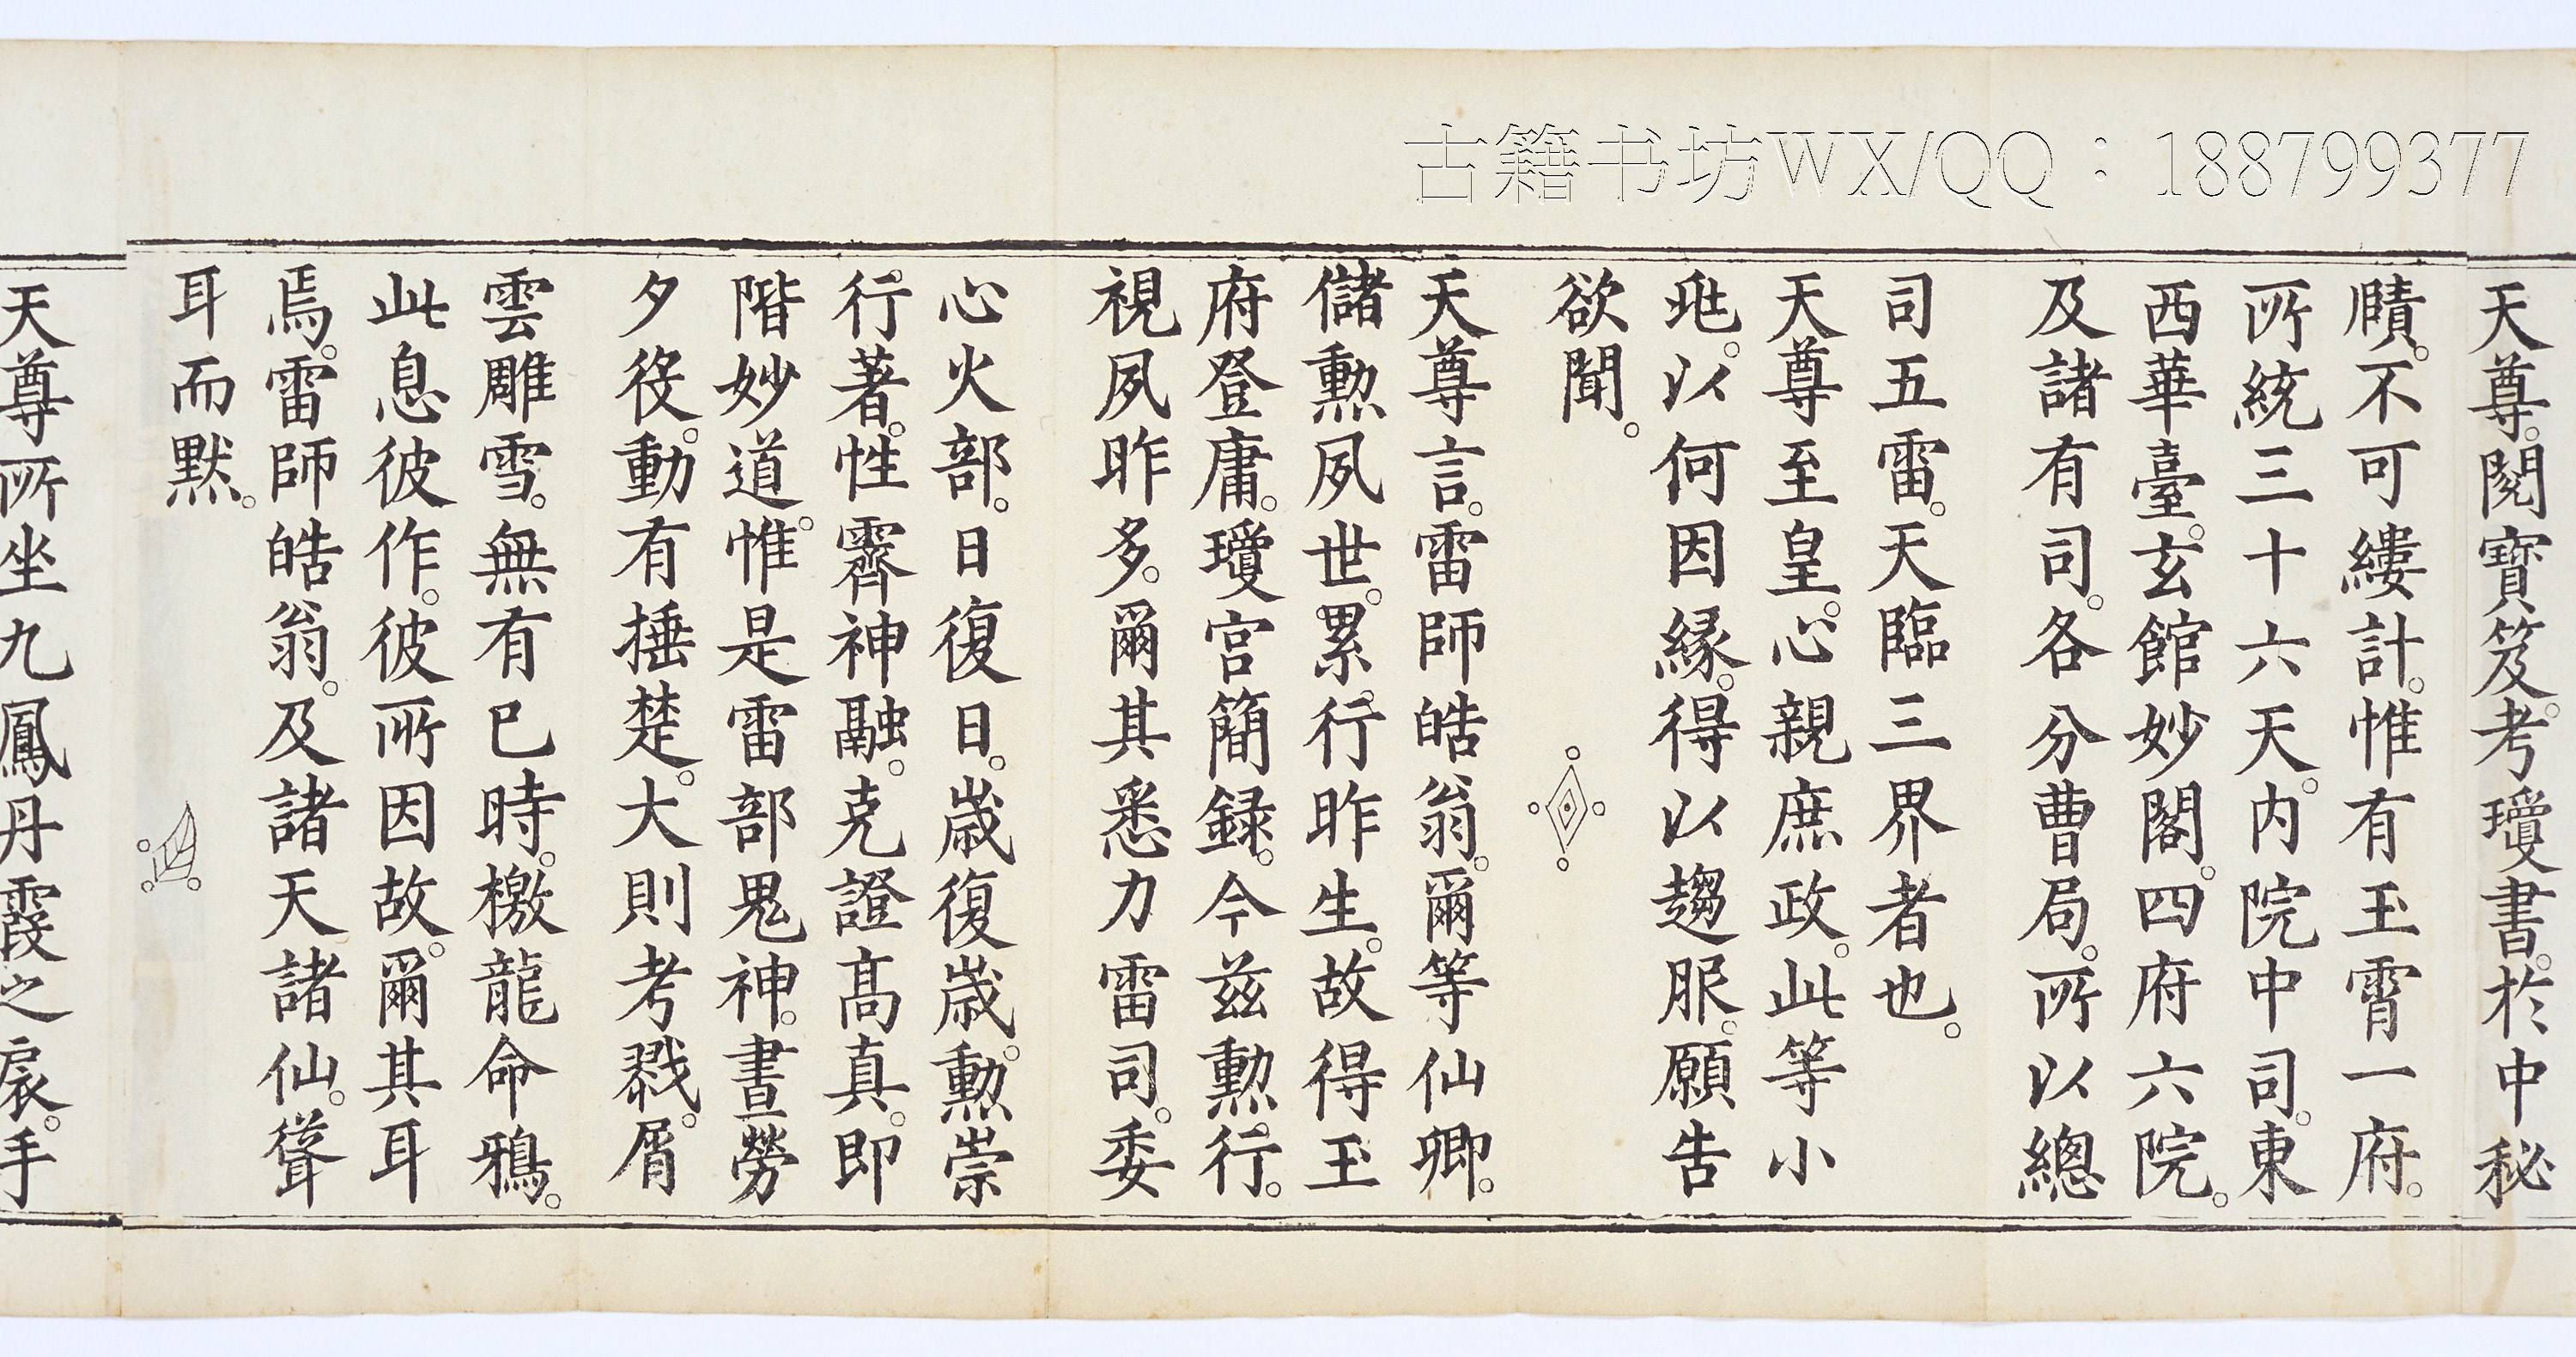 古籍书坊WX/QQ：188799377
天尊。閱寶笈。考瓊書。於中秘
賾。不可縷計。惟有玉霄一府。
所統三十六天。內院中司。東
西華臺。玄館妙閣。四府六院。
及諸有司。各分曹局。所以總
司五雷。天臨三界者也。
天尊至皇。心親庶政。此等小
兆。以何因緣。得以趨服。願告
欲聞。
天尊言。雷師皓翁。爾等仙卿。
儲勲夙世。累。行昨生。故得玉
府登庸。瓊宮簡録。今兹勲。行。
視夙昨多。爾其悉力雷司。委
心火部。日復日。歲復歲。勲崇
行著。性霽神融。克證高真。即
階妙道。惟是雷部鬼神。晝勞
夕役。動有捶楚。大則考戮。屑
雲雕雪。無有已時。檄龍命鴉。
此息彼作。彼所因故。爾其耳
焉。雷師皓翁。及諸天諸仙。聳
耳而默。
天尊所坐九鳳丹霞之扆。手